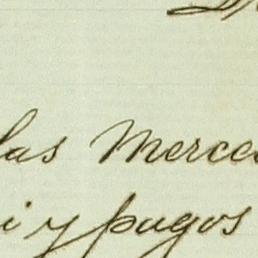 las Merce
i y pagos